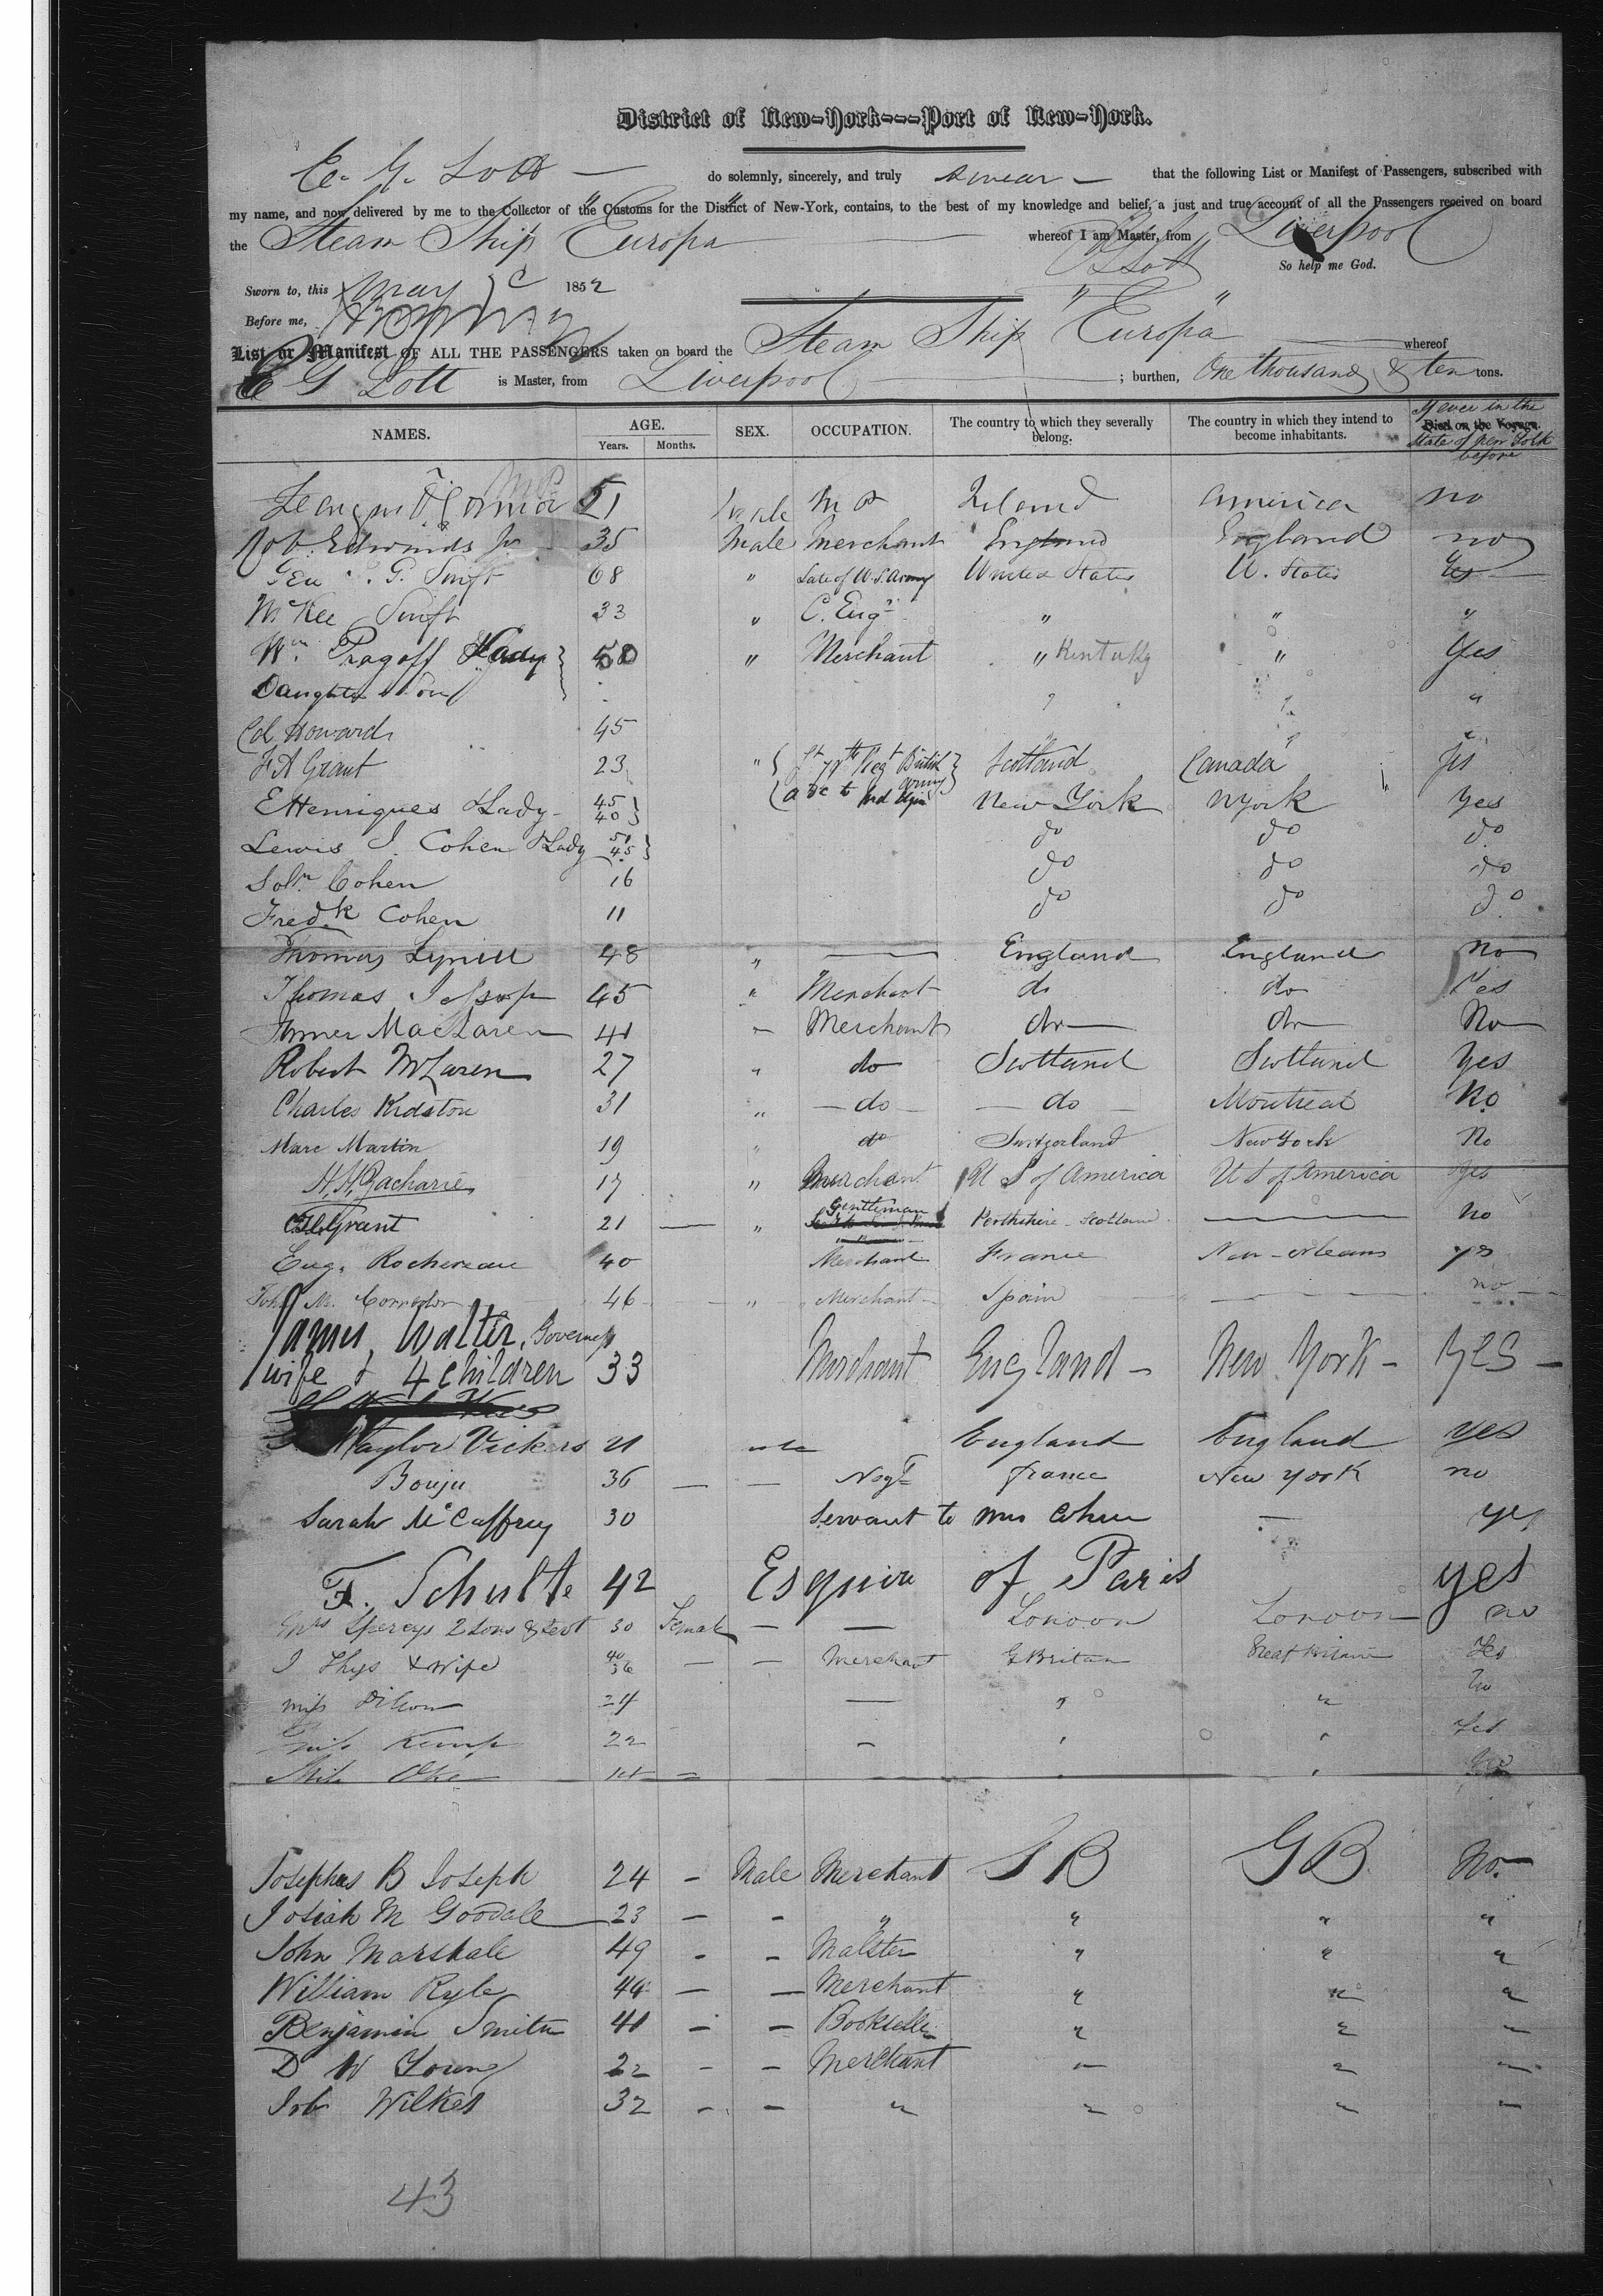 District of New-York---Port of New-York.
E. G. Lott — do solemnly, sincerely, and truly swear — that the following List or Manifest of Passengers, subscribed with
my name, and now delivered by me to the Collector of the Customs for the District of New-York, contains, to the best of my knowledge and belief, a just and true account of all the Passengers received on board
the Steam Ship "Europa" whereof I am Master, from Liverpool
So help me God.
Sworn to, this May 1852
Before me,
List or Manifest OF ALL THE PASSENGERS taken on board the Steam Ship "Europa" whereof
E G Lott is Master, from Liverpool ; burthen, One thousand & ten tons.
NAMES. AGE. Years. Months. SEX. OCCUPATION. The country to which they severally belong. The country in which they intend to become inhabitants. Died on the Voyage. If ever in the State of New York before
51 Male Ireland America no
Rob. Edwards Jr 35 Male Merchant England England no
Gen. G. Swift 68 " Late of U.S. Army United States U. States Yes
McKee Swift 33 " C. Engr " " "
Wm. Pragoff & Lady 50 " Merchant " Kentuky " Yes
Daughter & Son " "
Col. Howard 45
F A Grant 23 " Lt 79th Regt British Army Scotland Canada Yes
a de c to Lord Elgin
E Henriques & Lady 45 40 New York N York Yes
Lewis I. Cohen & Lady 50 45 do do do
Soln. Cohen 16 do do do
Fredk. Cohen 11 do do do
Thomas 48 " — England England No
Thomas Jessop 45 " Merchant do do Yes
James MacLaren 41 " Merchant do do No
Robert McLaren 27 " do Scotland Scotland Yes
Charles Kidston 31 " do do Montreal No
Marc Martin 19 " do Switzerland New York No
H. H. Zacharie 17 " Merchant U S of America U S of America Yes
Grant 21 — " Gentleman Perthshire - Scotland — No
Eug. Rochereau 40 Merchant France New-orleans yes
John M. Corredor 46 " Merchant Spain — no
James Walter, Governess
wife & 4 children 33 Merchant England - New York - Yes -
Naylor Vickers 21 England England yes
Bouju 36 — — Negt france New York no
Sarah McCaffrey 30 Servant to Mrs Cohen — yes
F. Schulte 42 Esquire of Paris yes
Mrs 2 Sons & Servt 30 Female — — London London no
J Thys & Wife 40 36 — — Merchant G Britain Great Britain Yes
Miss 24 — " " No
Kemp 22 - " " Yes
Josephus B Joseph 24 - Male Merchant G B G B No.
Josiah M Goodale 23 — - " " " "
John Marshale 49 - - Malster " " "
William Ryle 44 — — Merchant " " "
Benjamin Smith 41 - - Bookseller " " "
D W Young 22 - - Merchant " " "
Job Wilkes 32 - - " " " "
43